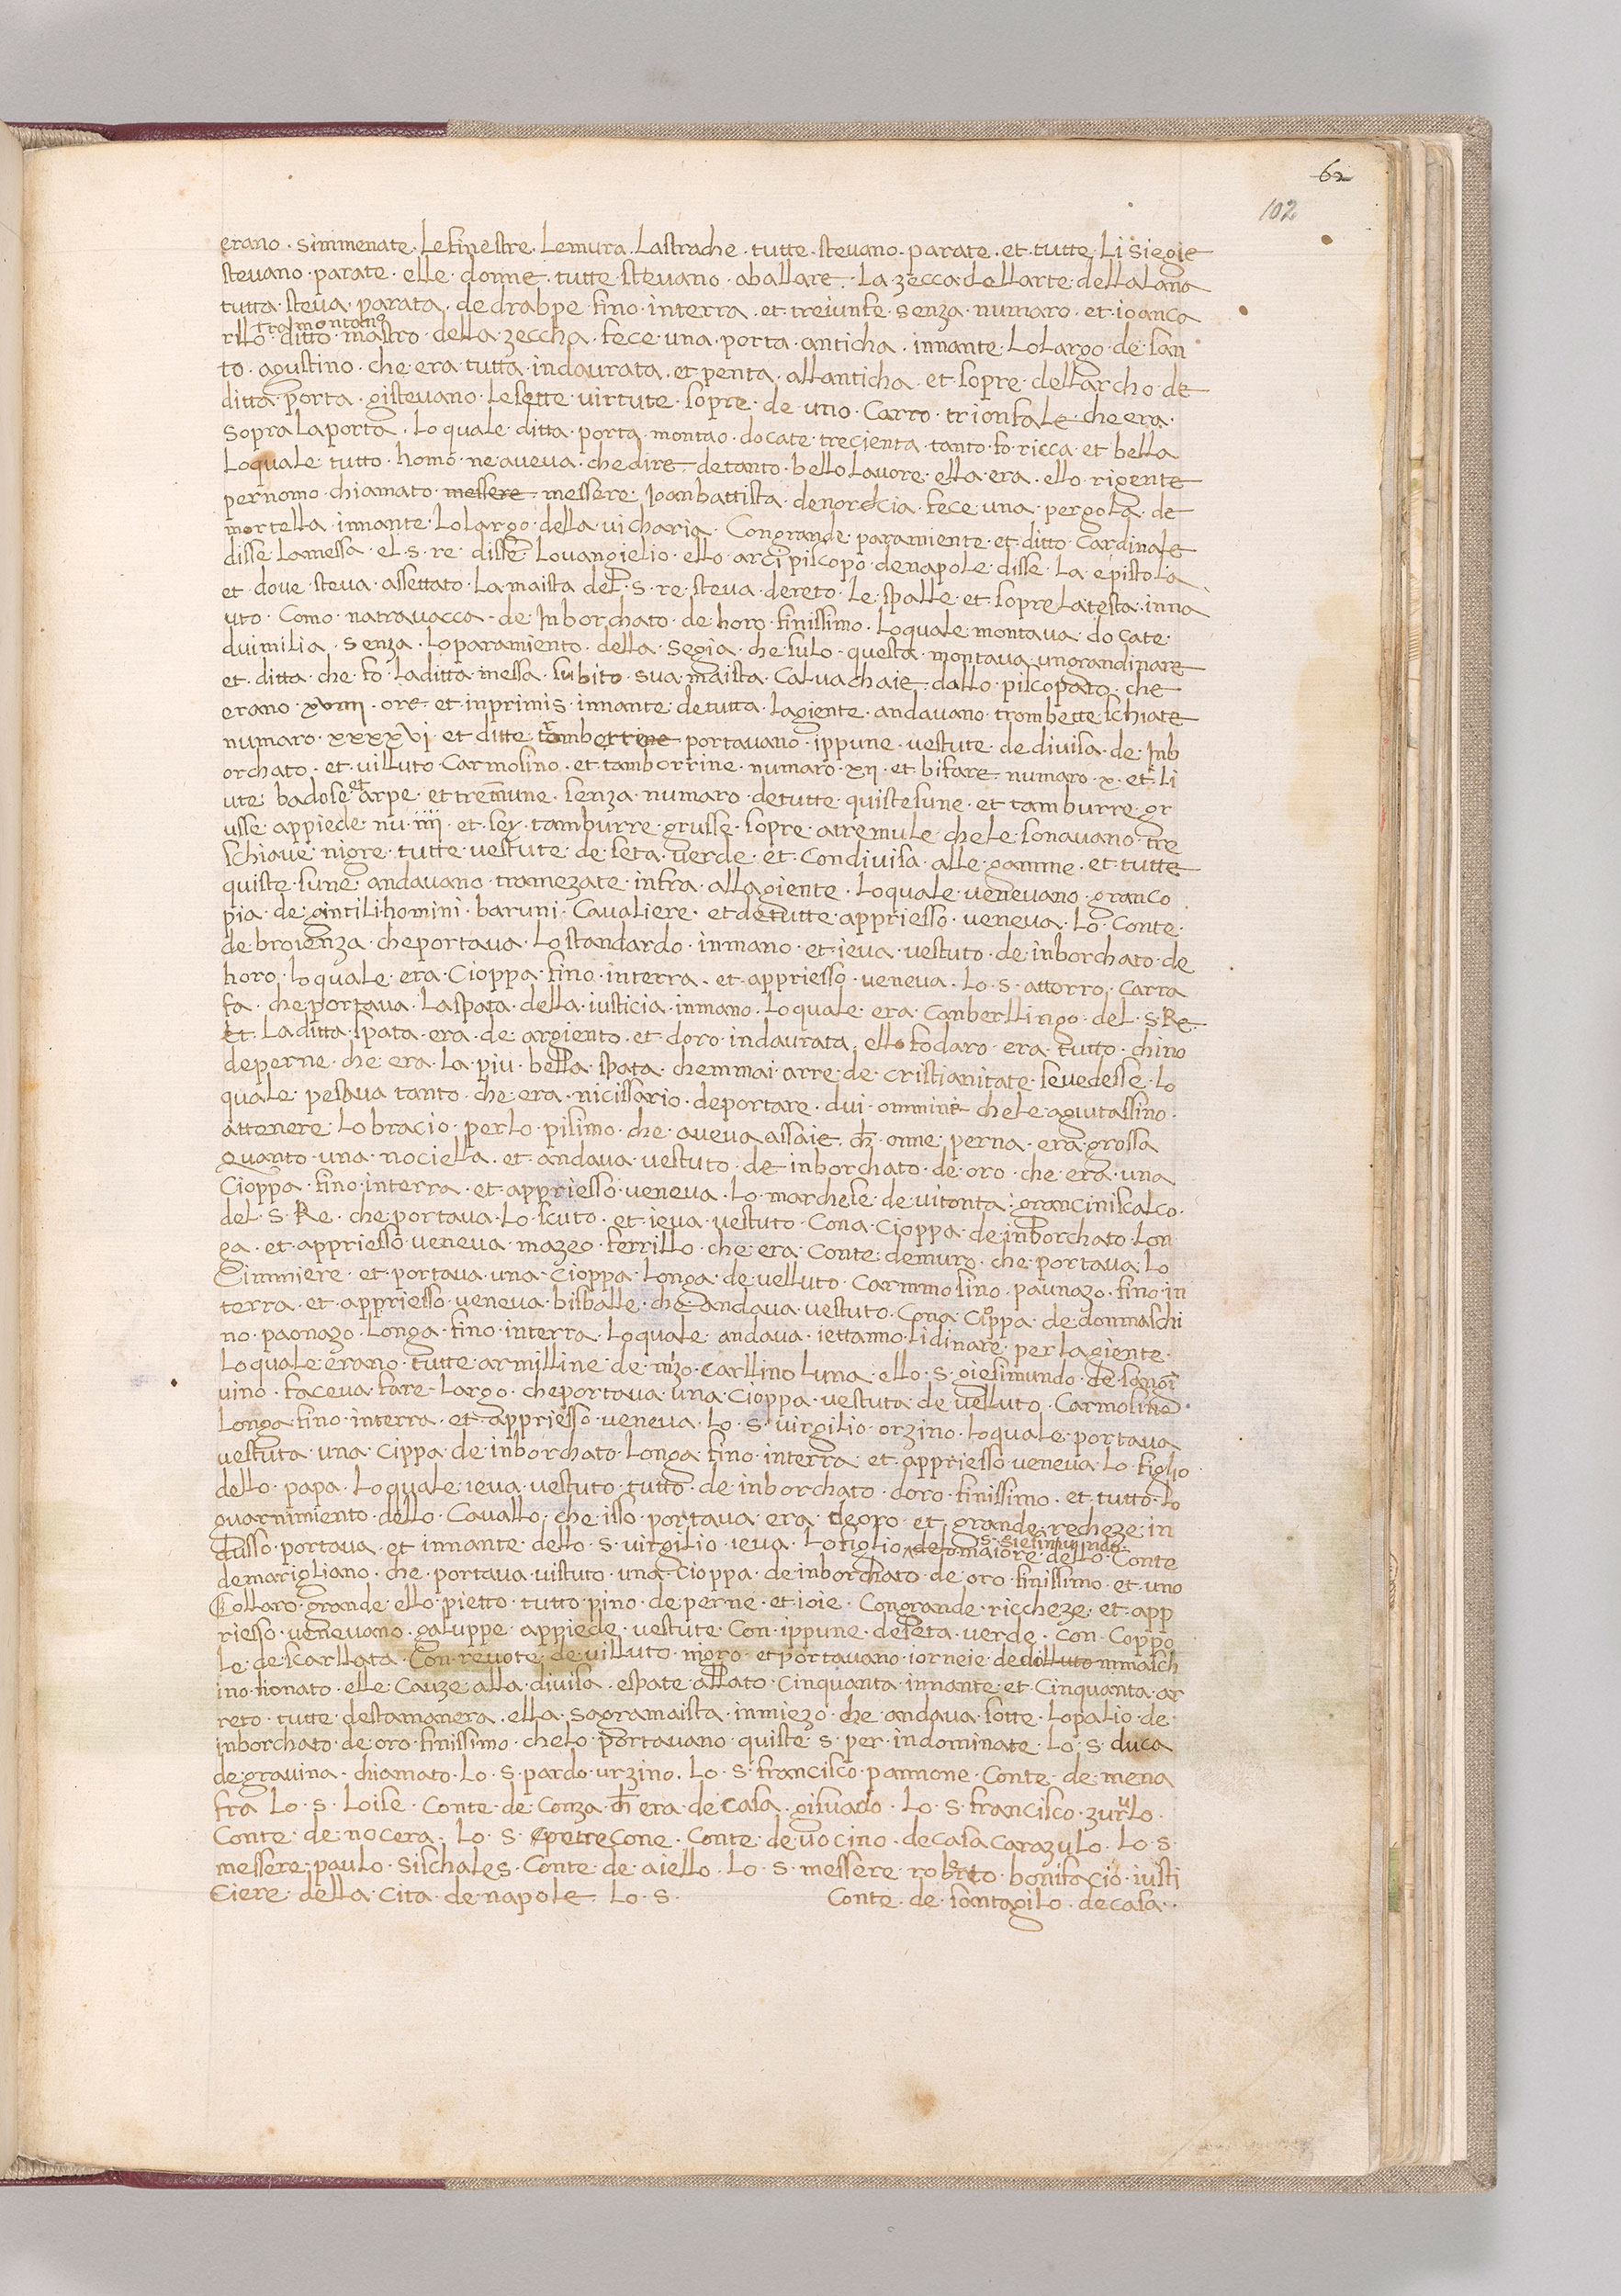 62
102
erano · simmenate · Le finestre · Le mura · La strache · tutte · stevano · parate · et · tutte · Li siegie
stevano · parate · elle · donne · tutte · stevano · aballare · La · zecca dellarte · della Lana
tutta · steva · parata · de drabpe · fino · interra · et treiunfe · senza · numaro · et · ioanca
tramontano
rllo · ditto · mastro · della · zeccha · fece · una · porta · anticha · innante · Lo Largo · de · san
to · agustino · che · era · tutta · indaurata · et · penta · allanticha · et · sopre · dellarcho · de
ditta · porta · gistevano · Le sette · virtute · sopre · de · uno · Carro · trionfale · che era ·
sopra La porta · Lo quale · ditta · porta · montao · docate · trecienta · tanto · fo · ricca · et · bella
Lo quale · tutto · homo · ne aveva · che dire · de tanto · bello Lavore · ella · era · ello · rigente
per nomo · chiamato · messere · messere · Joanbattista · de norcia · fece · una · pergola · de
mortella · innante · Lo Largo · della · vicharia · Con grande · paramiente · et · ditto · Cardinale
disse · La messa · el · s · re · disse · Lo vangielio · ello · arcipiscopo · de napole · disse · La · epistola
et · dove · steva · assettato · La · maista · del · s · re · steva · dereto · Le · spalle · et · sopre La testa · inna
uto · Como · na travacca · de · Inborchato · de · horo · finissimo · Lo quale · montava · docate ·
dui milia · senza · Lo paramiento · della · segia · che sulo · questa · montava · un gran dinare
et · ditta · che · fo · La ditta · messa · subito · sua · maista · Calvachaie · dallo · piscopato · che
erano · xviiii · ore · et · inprimis · innante · de tutta · La giente · andavano · trombette · schiate
numaro · xxxxvi · et ditte · tromberrine · portavano · ippune · vestute · de divisa · de · Inb
orchato · et · villuto · Carmosino · et · tamborrine · numaro · xii · et · bifare · numaro · x · et · Li
ute · badose · et arpe · et tremmune · senza · numaro · de tutte · quiste sune · et · tamburre · gr
usse · appiede · nu · iiii · et · sey · tamburre · grusse · sopre · a tre mule · che Le · sonavano · tre
schiave · nigre · tutte · vestute · de · seta · verde · et · Con divisa · alle · gamme · et · tutte
quiste · sune · andavano · tramezate · infra · alla giente · Lo quale · venevano · gran co
pia · de · gintili homini · baruni · Cavaliere · et de tutte · appriesso · veneva · Lo · Conte ·
de broienza · che portava · Lo standardo · in mano · et · ieva · vestuto · de · inborchato · de
horo · Lo quale · era · Cioppa · fino · interra · et · appriesso · veneva · Lo · s · attorro · Carra
fa · che portava · La spata · della · iusticia · in mano · Lo quale · era · Canberllingo · del · s · Re ·
Et · La ditta · spata · era · de · argiento · et · doro · indaurata · ello fodaro · era · tutto · chino
de perne · che · era · La · piu · bella · spata · chemmai · arre · de · cristianitate · se vedesse · Lo
quale · pesava · tanto · che · era · nicissario · de portare · dui · ommine · che Le · agiutassino ·
attenere · Lo bracio · per lo · pisimo · che · aveva assaie · ch · onne · perna · era · grossa
quanto · una · nociella · et · andava · vestuto · de · inborchato · de · oro · che era · una
Cioppa · fino · interra · et · appriesso · veneva · Lo · marchese · de vitonta · gran ciniscalco ·
del · s · Re · che portava · Lo · scuto · et · ieva · vestuto · Cona · Cioppa · de inborchato · Lon
ga · et · appriesso · veneva · mazeo · ferrillo · che · era · Conte · de muro · che · portava · Lo
Cimmiere · et · portava · una · Cioppa · Longa · de velluto · Carmmosino · paunazo · fino · in
terra · et · appriesso · veneva · bisballe · che andava · vestuto · Cona · Cioppa · de dommaschi
no · paonazo · Longa · fino · interra · Lo quale · andava · iettanno · Li dinare · per La giente ·
Lo quale erano · tutte · armilline · de · mizo · carllino Luna · ello · s · giesimundo · de · sangi
vino · faceva · fare · Largo · che portava · una · Cioppa · vestuta · de · velluto · Carmosino ·
Longa · fino · interra · et · appriesso · veneva · Lo · s · virgilio · orzino · Lo quale · portava
vestuta · una · Cippa · de inborchato · Longa · fino · interra · et · appriesso · veneva · Lo · figlio ·
dello · papa · Lo quale · ieva · vestuto · tutto · de · inborchato · doro · finissimo · et · tutto · Lo
guarnimiento · dello · Cavallo · che · isso · portava · era · de oro · et · grande · recheze · in
s · giesimundo
dusso · portava · et · innante · dello · s · virgilio · ieva · Lo figlio · delo maiore · dello · Conte
de marigliano · che · portava · vistuto · una Cioppa · de inborchato · de · oro · finissimo · et · uno
Collaro · grande · ello · pietto · tutto · pino · de · perne · et ioie · Con grande · riccheze · et · app
riesso · venevano · galuppe · appiede · vestute · Con · ippune · de seta · verde · Con · Coppo
Le · de · scarllata · Con revote · de · villuto · nigro · et portavano · iorneie · de dilluto mmasch
ino · lionato · elle · Cauze · alla · divisa · espate · allato · Cinquanta · innante · et · Cinquanta · ar
reto · tutte · desta manera · ella · sagra maista · in miezo · che · andava · sotte · Lo palio · de ·
inborchato · de · oro · finissimo · che lo · portavano · quiste · s · per · indominate · Lo · s · duca
de · gravina · chiamato · Lo · s · pardo · urzino · Lo · s · francisco · pannone · Conte · de · mena
fra · Lo · s · Loise · Conte · de · Conza · ch era · de Casa · gisuado · Lo · s · francisco · zurulo ·
Conte · de · nocera · Lo · s · petrecone · Conte · de vocino · de casa Carazulo · Lo · s ·
messere · paulo · sischales · Conte · de · aiello · Lo · s · messere · roberto · bonifacio · iusti
ciere · della · cita · de · napole · Lo · s · Conte · de · santagilo · de casa ·